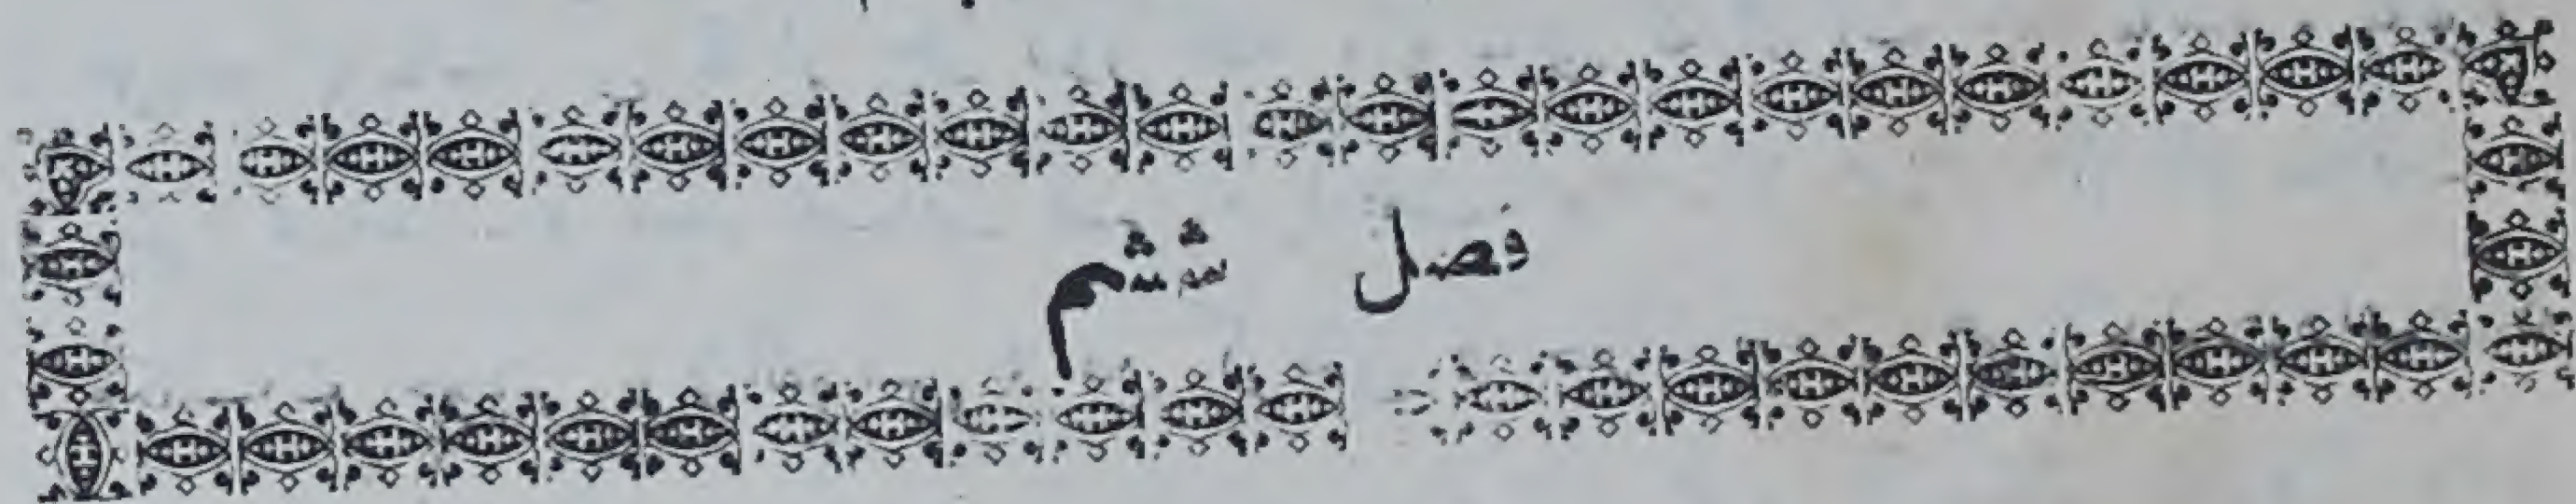 فصل ششم